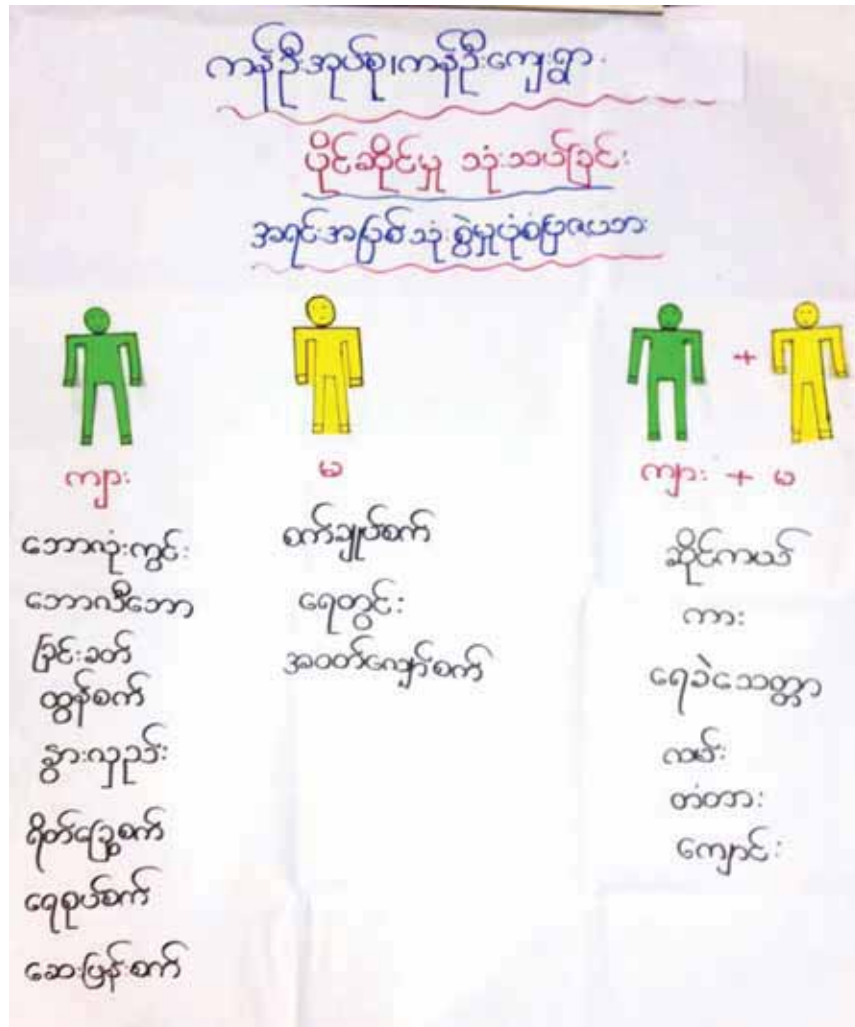 ကန်ဦးအုပ်စု၊ကန်ဦးကျေးရွာ
ပိုင်ဆိုင်မှု သုံးသပ်ခြင်း
အရင်းအမြစ်သုံးစွဲမှုပုံစံပြဇယား
ကျား
ဘောလုံးကွင်း
ဘောလီဘော
ခြင်းခတ်
ထွန်စက်
နွားလှည်း
ရိတ်ခြွေစက်
ရေစုပ်စက်
ဆေးဖြန်းစက်
မ
စက်ချုပ်စက်
ရေတွင်း
အဝတ်လျှော်စက်
+
ကျား + မ
ဆိုင်ကယ်
ကား
ရေခဲသေတ္တာ
လမ်း
တံတား
ကျောင်း